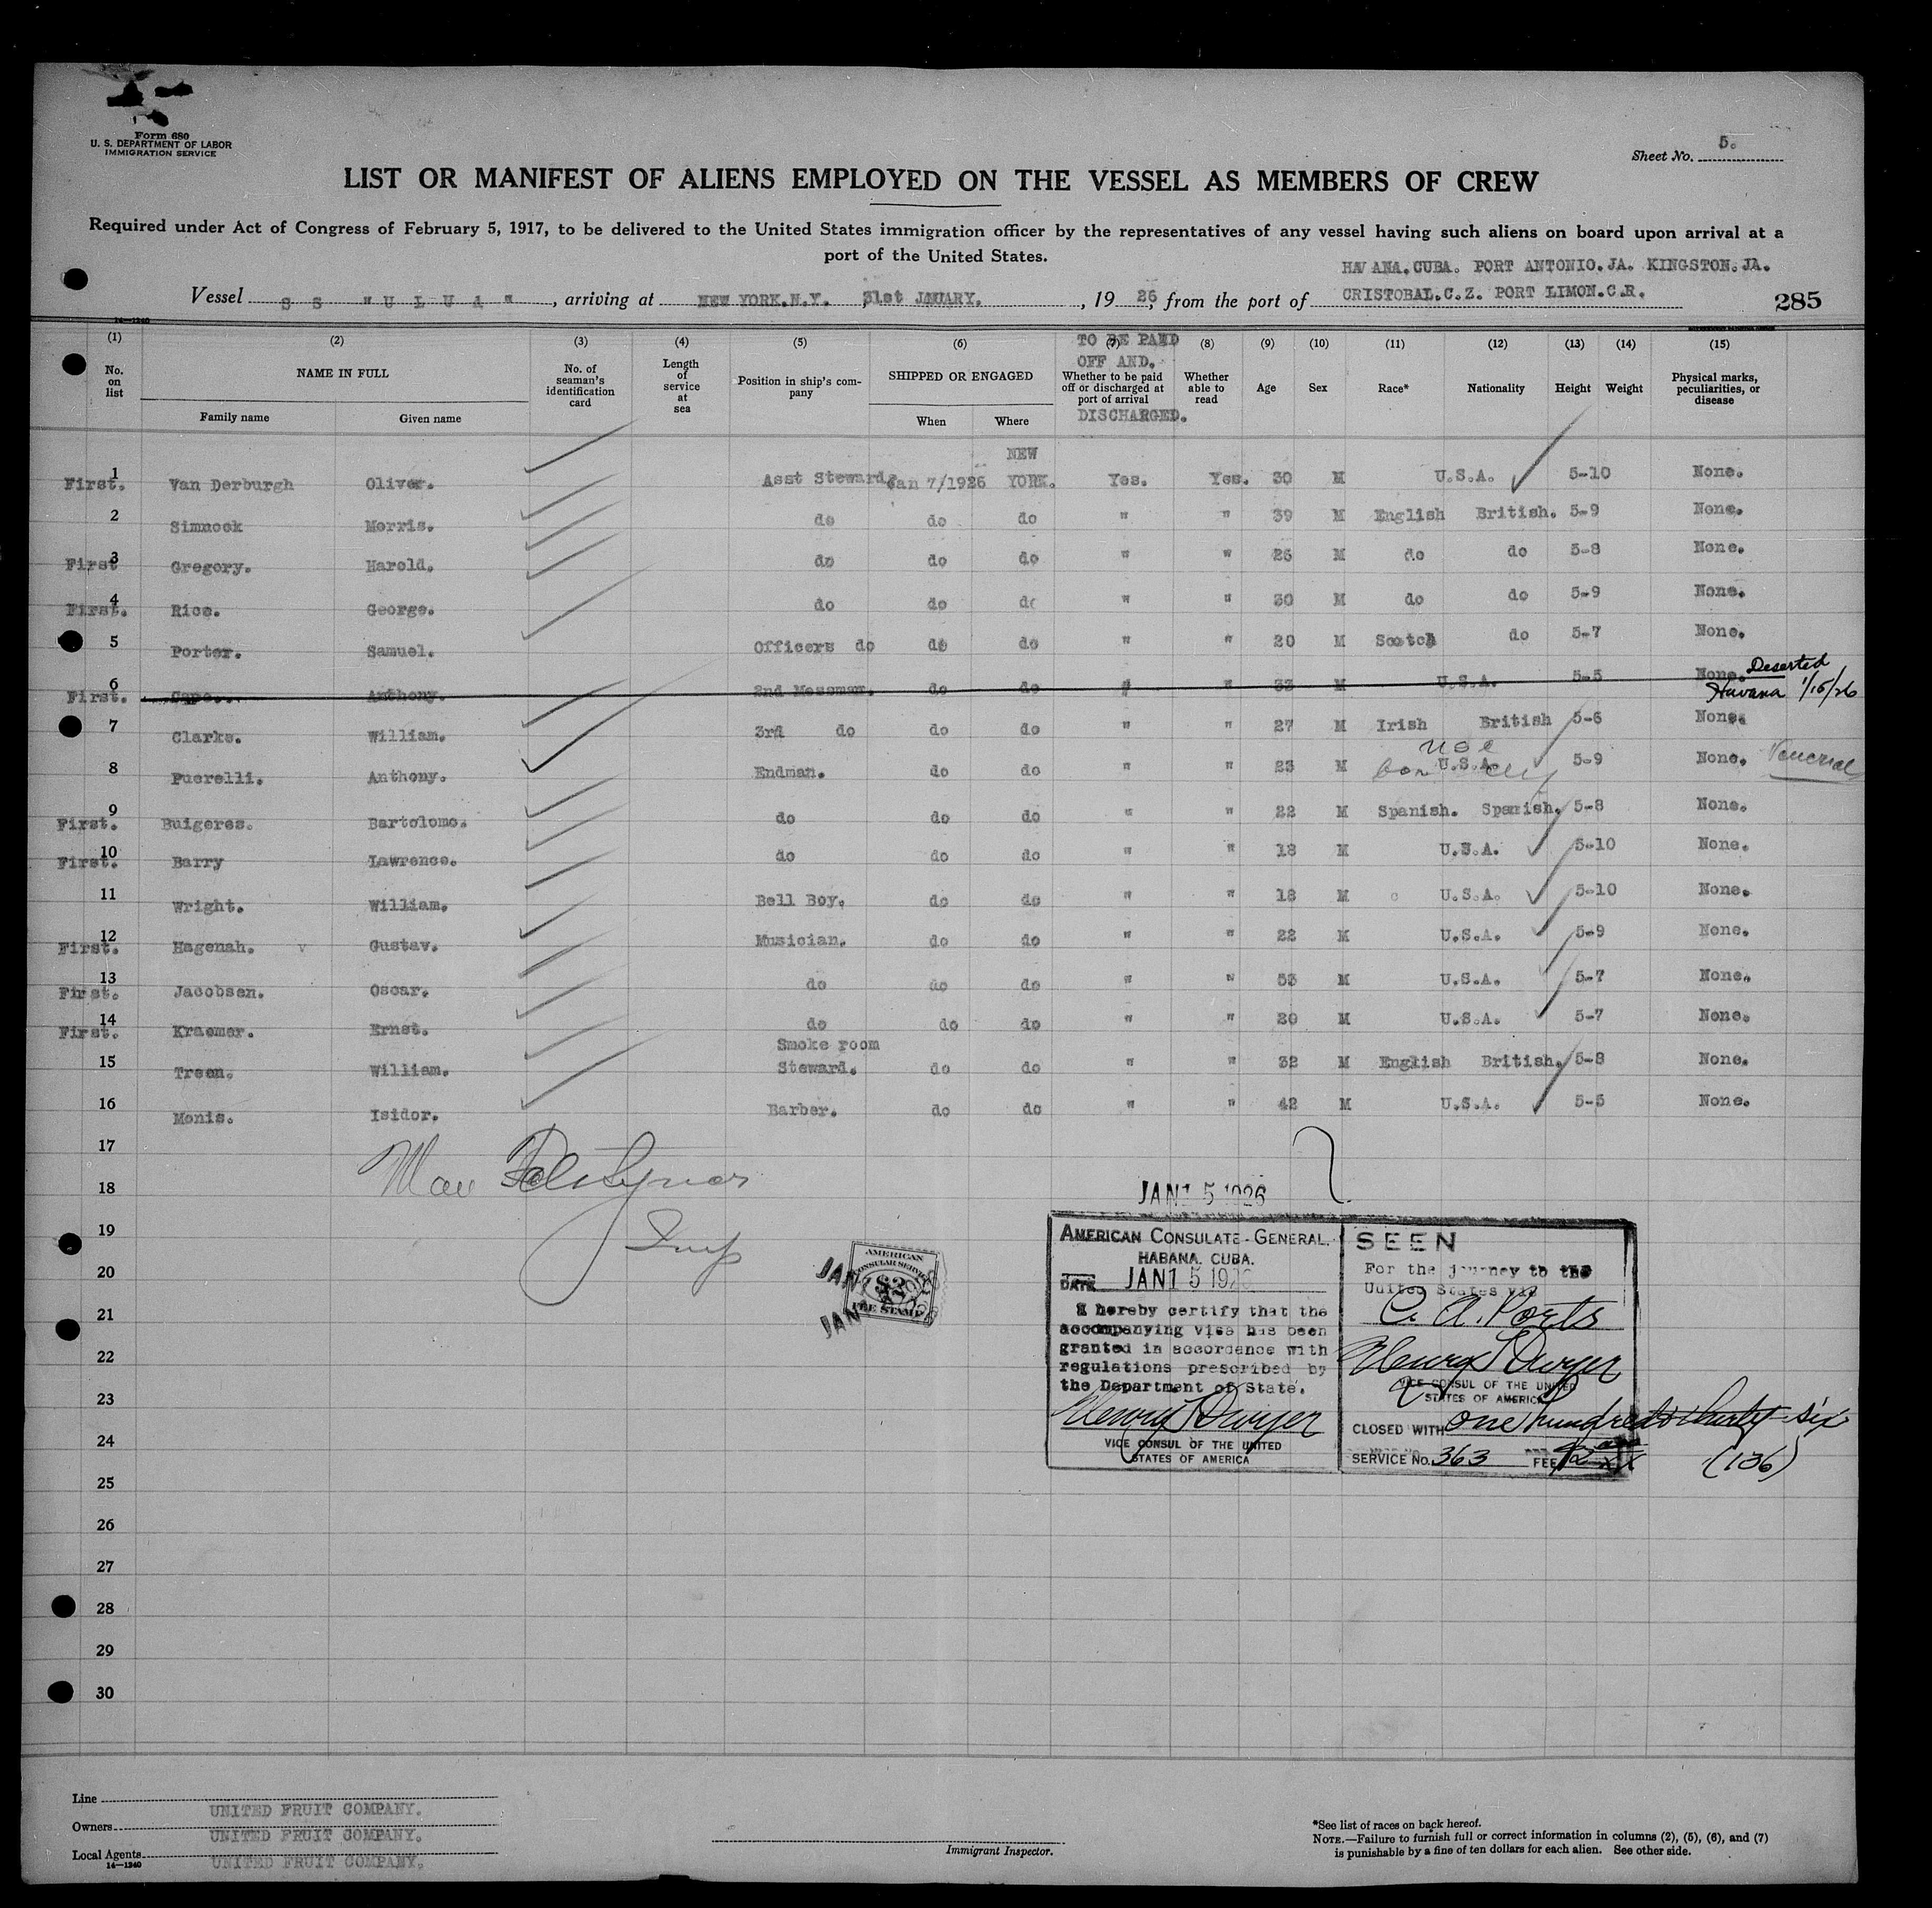 Form 680
U. S. DEPARTMENT OF LABOR
IMMIGRATION SERVICE
Sheet No. 5.
LIST OR MANIFEST OF ALIENS EMPLOYED ON THE VESSEL AS MEMBERS OF CREW
Required under Act of Congress of February 5, 1917, to be delivered to the United States immigration officer by the representatives of any vessel having such aliens on board upon arrival at a
port of the United States.
HAVANA.CUBA. PORT ANTONIO.JA. KINGSTON.JA.
Vessel S S "U L U A", arriving at NEW YORK.N.Y. 31st JANUARY., 19 26, from the port of CRISTOBAL.C.Z. PORT LIMON.C.R. 285
14—1240
(1) (2) (3) (4) (5) (6) (7) (8) (9) (10) (11) (12) (13) (14) (15)
TO BE PAID
OFF AND.
DISCHARGED.
No. on list NAME IN FULL No. of seaman's identification card Length of service at sea Position in ship's company SHIPPED OR ENGAGED Whether to be paid off or discharged at port of arrival Whether able to read Age Sex Race* Nationality Height Weight Physical marks, peculiarities, or disease
Family name Given name When Where
First. 1 Van Derburgh Oliver. Asst Steward. Jan 7/1926 NEW YORK. Yes. Yes. 30 M U.S.A. 5-10 None.
2 Simnock Morris. do do do " " 39 M English British. 5-9 None.
First 3 Gregory. Harold. do do do " " 26 M do do 5-8 None.
First. 4 Rice. George. do do do " " 30 M do do 5-9 None.
5 Porter. Samuel. Officers do do do " " 20 M Scotch do 5-7 None.
First. 6 Cape. Anthony. 2nd Messman. do do " " 33 M U.S.A. 5-5 None. Deserted Havana 1/15/26
7 Clarke. William. 3rd do do do " " 27 M Irish British 5-6 None.
8 Puerelli. Anthony. Endman. do do " " 23 M U.S.A. 5-9 None. Venereal
First. 9 Buigeres. Bartolome. do do do " " 22 M Spanish. Spanish. 5-8 None.
First. 10 Barry Lawrence. do do do " " 18 M U.S.A. 5-10 None.
11 Wright. William. Bell Boy. do do " " 18 M U.S.A. 5-10 None.
First. 12 Hagenah. v Gustav. Musician. do do " " 22 M U.S.A. 5-9 None.
First. 13 Jacobsen. Oscar. do do do " " 53 M U.S.A. 5-7 None.
First. 14 Kraemer. Ernst. do do do " " 20 M U.S.A. 5-7 None.
15 Treen. William. Smoke room Steward. do do " " 32 M English British. 5-8 None.
16 Monis. Isidor. Barber. do do " " 42 M U.S.A. 5-5 None.
17
18
19
20
21
22
23
24
25
26
27
28
29
30
Insp
AMERICAN
CONSULAR SERVICE
$2
FEE STAMP
JAN 15 1926
AMERICAN CONSULATE-GENERAL.
HABANA. CUBA.
DATE JAN 15 1926
I hereby certify that the
accompanying visa has been
granted in accordance with
regulations prescribed by
the Department of State.
Henry T Dwyer
VICE CONSUL OF THE UNITED
STATES OF AMERICA
SEEN
For the journey to the
United States via
C. A. Ports
Henry T Dwyer
VICE CONSUL OF THE UNITED
STATES OF AMERICA
CLOSED WITH one hundred & thirty-six
(136)
SERVICE No. 363 FEE $2
Line UNITED FRUIT COMPANY.
Owners UNITED FRUIT COMPANY.
Local Agents UNITED FRUIT COMPANY.
14—1240
Immigrant Inspector.
*See list of races on back hereof.
NOTE.—Failure to furnish full or correct information in columns (2), (5), (6), and (7)
is punishable by a fine of ten dollars for each alien. See other side.